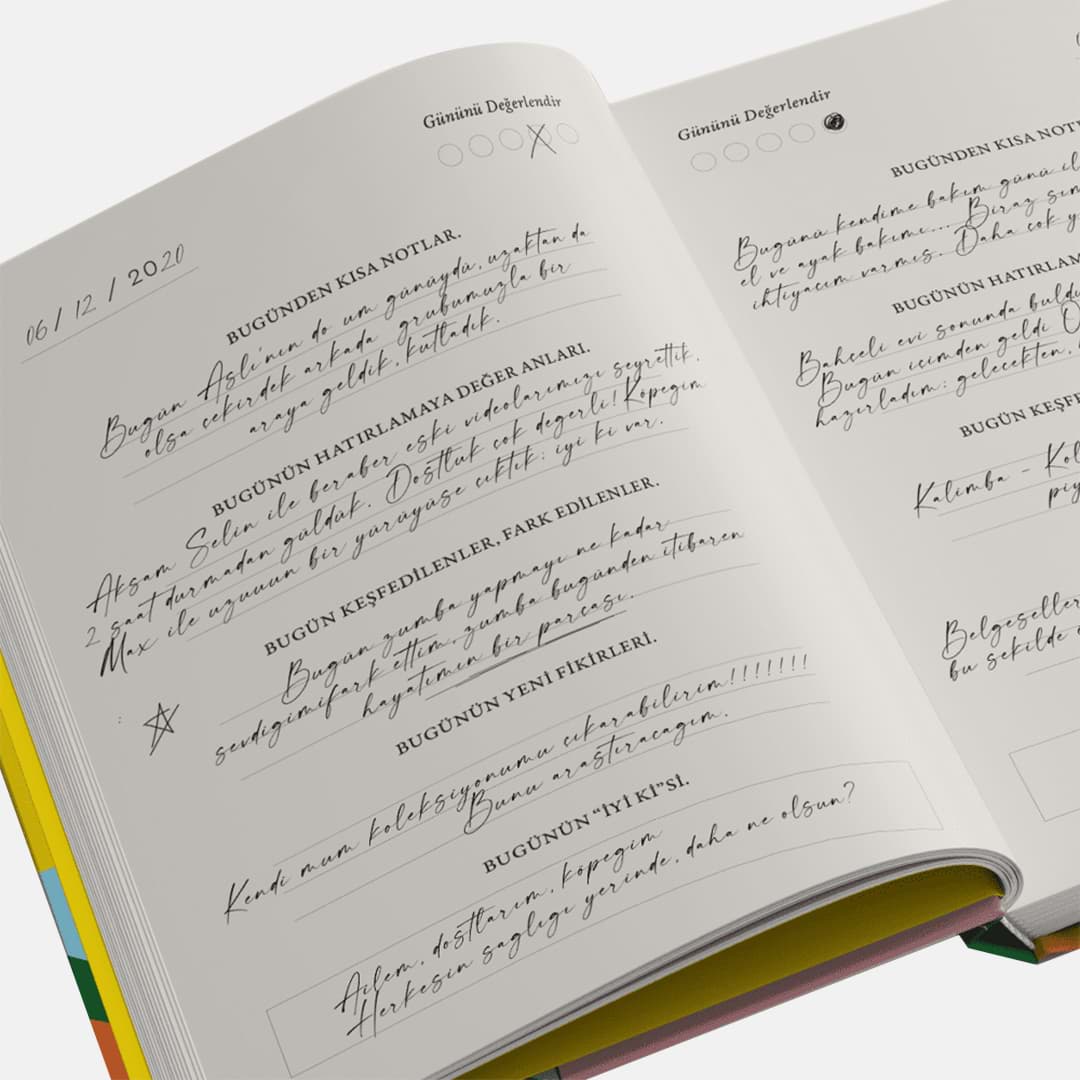 Gününü Değerlendir
06 / 12 / 2020
BUGÜNDEN KISA NOTLAR.
Bugün Aslı'nın do um günüydü, uzaktan da
olsa cekirdek arkada grubumuzla bir
araya geldik, kutladık.
BUGÜNÜN HATIRLAMAYA DEĞER ANLARI.
Aksam Selin ile beraber eski videolarımızı seyrettik,
2 saat durmadan güldük. Dostluk cok degerli! Köpegim
Max ile uzuuun bir yürüyüse cıktık; iyi ki var.
BUGÜN KEŞFEDİLENLER, FARK EDİLENLER.
Bugün zumba yapmayı ne kadar
sevdigimifark ettim, zumba bugünden itibaren
hayatımın bir parcası.
BUGÜNÜN YENİ FİKİRLERİ.
Kendi mum koleksiyonumu cıkarabilirim!!!!!!!
Bunu arastıracagım.
BUGÜNÜN “İYİ Kİ”Sİ.
Ailem, dostlarım, köpegim
Herkesin saglıgı yerinde, daha ne olsun?
Gününü Değerlendir
BUGÜNDEN KISA
Bugünü kendime bakım günü
el ve ayak bakımı... Biraz
ihtiyacım varmıs. Daha cok
BUGÜNÜN
Bahceli evi sonunda
Bugün icimden geldi
hazırladım; gelecekten,
BUGÜN
Kalimba -
bu sekilde